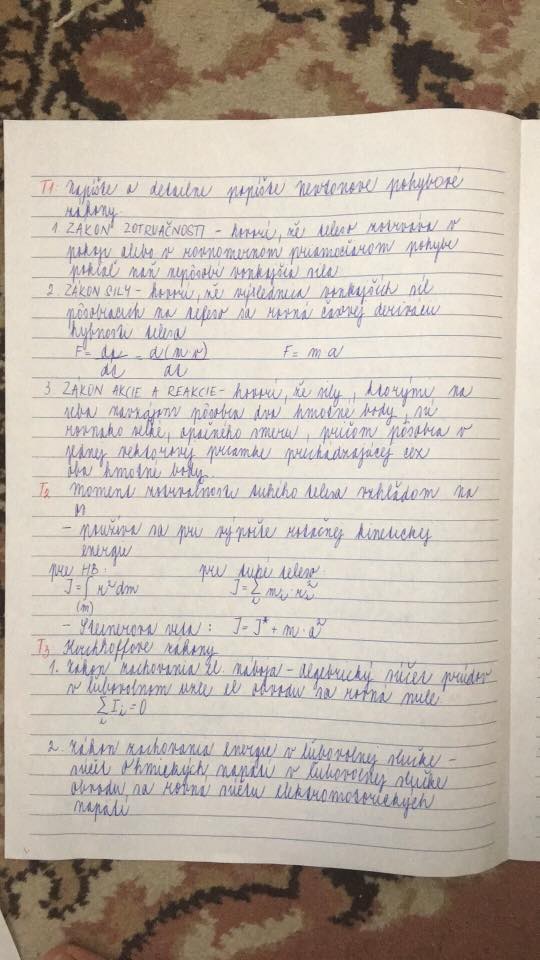 T1: Napíšte a detailne popíšte Newtonove pohybové
zákony.
1. ZÁKON ZOTRVAČNOSTI - hovorí, že teleso zotrváva v
pokoji alebo v rovnomernom priamočiarom pohybe
pokiaľ naň nepôsobí vonkajšia sila
2. ZÁKON SILY - hovorí, že výslednica vonkajších síl
pôsobiacich na teleso sa rovná časovej derivácii
hybnosti telesa
F = dp/dt = d(m.v)/dt F = m a
3. ZÁKON AKCIE A REAKCIE - hovorí, že sily, ktorými na
seba navzájom pôsobia dva hmotné body, sú
rovnako veľké, opačného smeru, pričom pôsobia v
jednej vektorovej priamke prechádzajúcej cez
oba hmotné body.
T2 Moment zotrvačnosti tuhého telesa vzhľadom na
os
- používa sa pri výpočte rotačnej kinetickej
energie
pre HB: pre tuhé teleso:
J = ∫(m) r² dm J = Σi mi . ri²
- Steinerova veta: J = J* + m . a²
T3 Kirchhoffove zákony
1. Zákon zachovania el. náboja - algebrický súčet prúdov
v ľubovolnom uzle el. obvodu sa rovná nule
Σi Ii = 0
2. Zákon zachovania energie v ľubovolnej slučke -
súčet ohmických napätí v ľubovolnej slučke
obvodu sa rovná súčtu elektromotorických
napätí